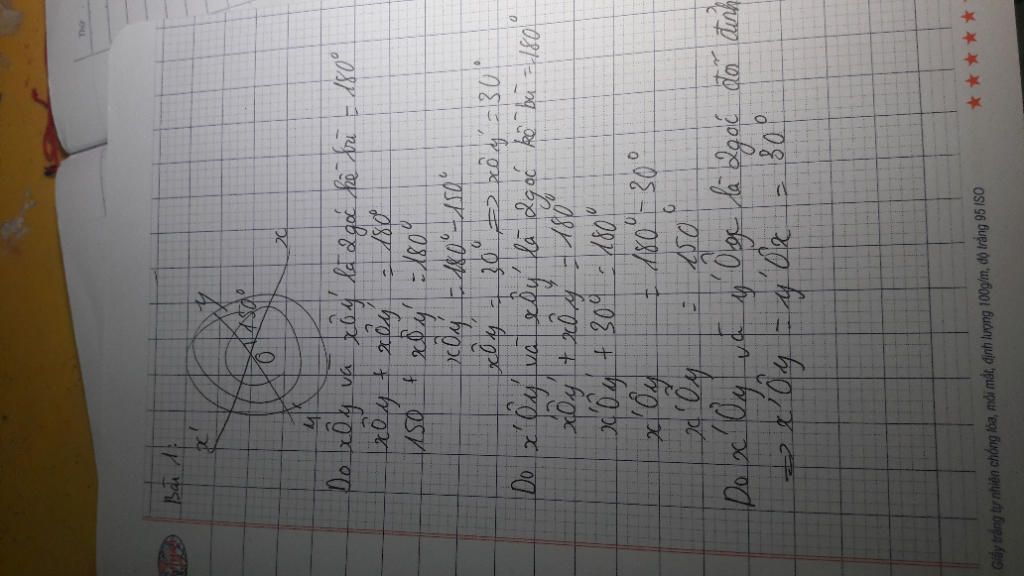 Thứ
Bài 1:
x'
y
150°
O
x
y'
Do xÔy và xÔy' là 2 góc kề bù = 180°
xÔy + xÔy' = 180°
150 + xÔy' = 180°
xÔy' = 180° - 150°
xÔy' = 30° => xÔy' = 30°
Do x'Ôy' và xÔy' là 2 góc kề bù = 180°
x'Ôy' + xÔy' = 180°
x'Ôy' + 30° = 180°
x'Ôy' = 180° - 30°
x'Ôy' = 150°
Do x'Ôy và y'Ôx là 2 góc đối đỉnh
=> x'Ôy = y'Ôx = 30°
Giấy trắng tự nhiên chống lóa, mỏi mắt, định lượng 100g/m, độ trắng 95 ISO